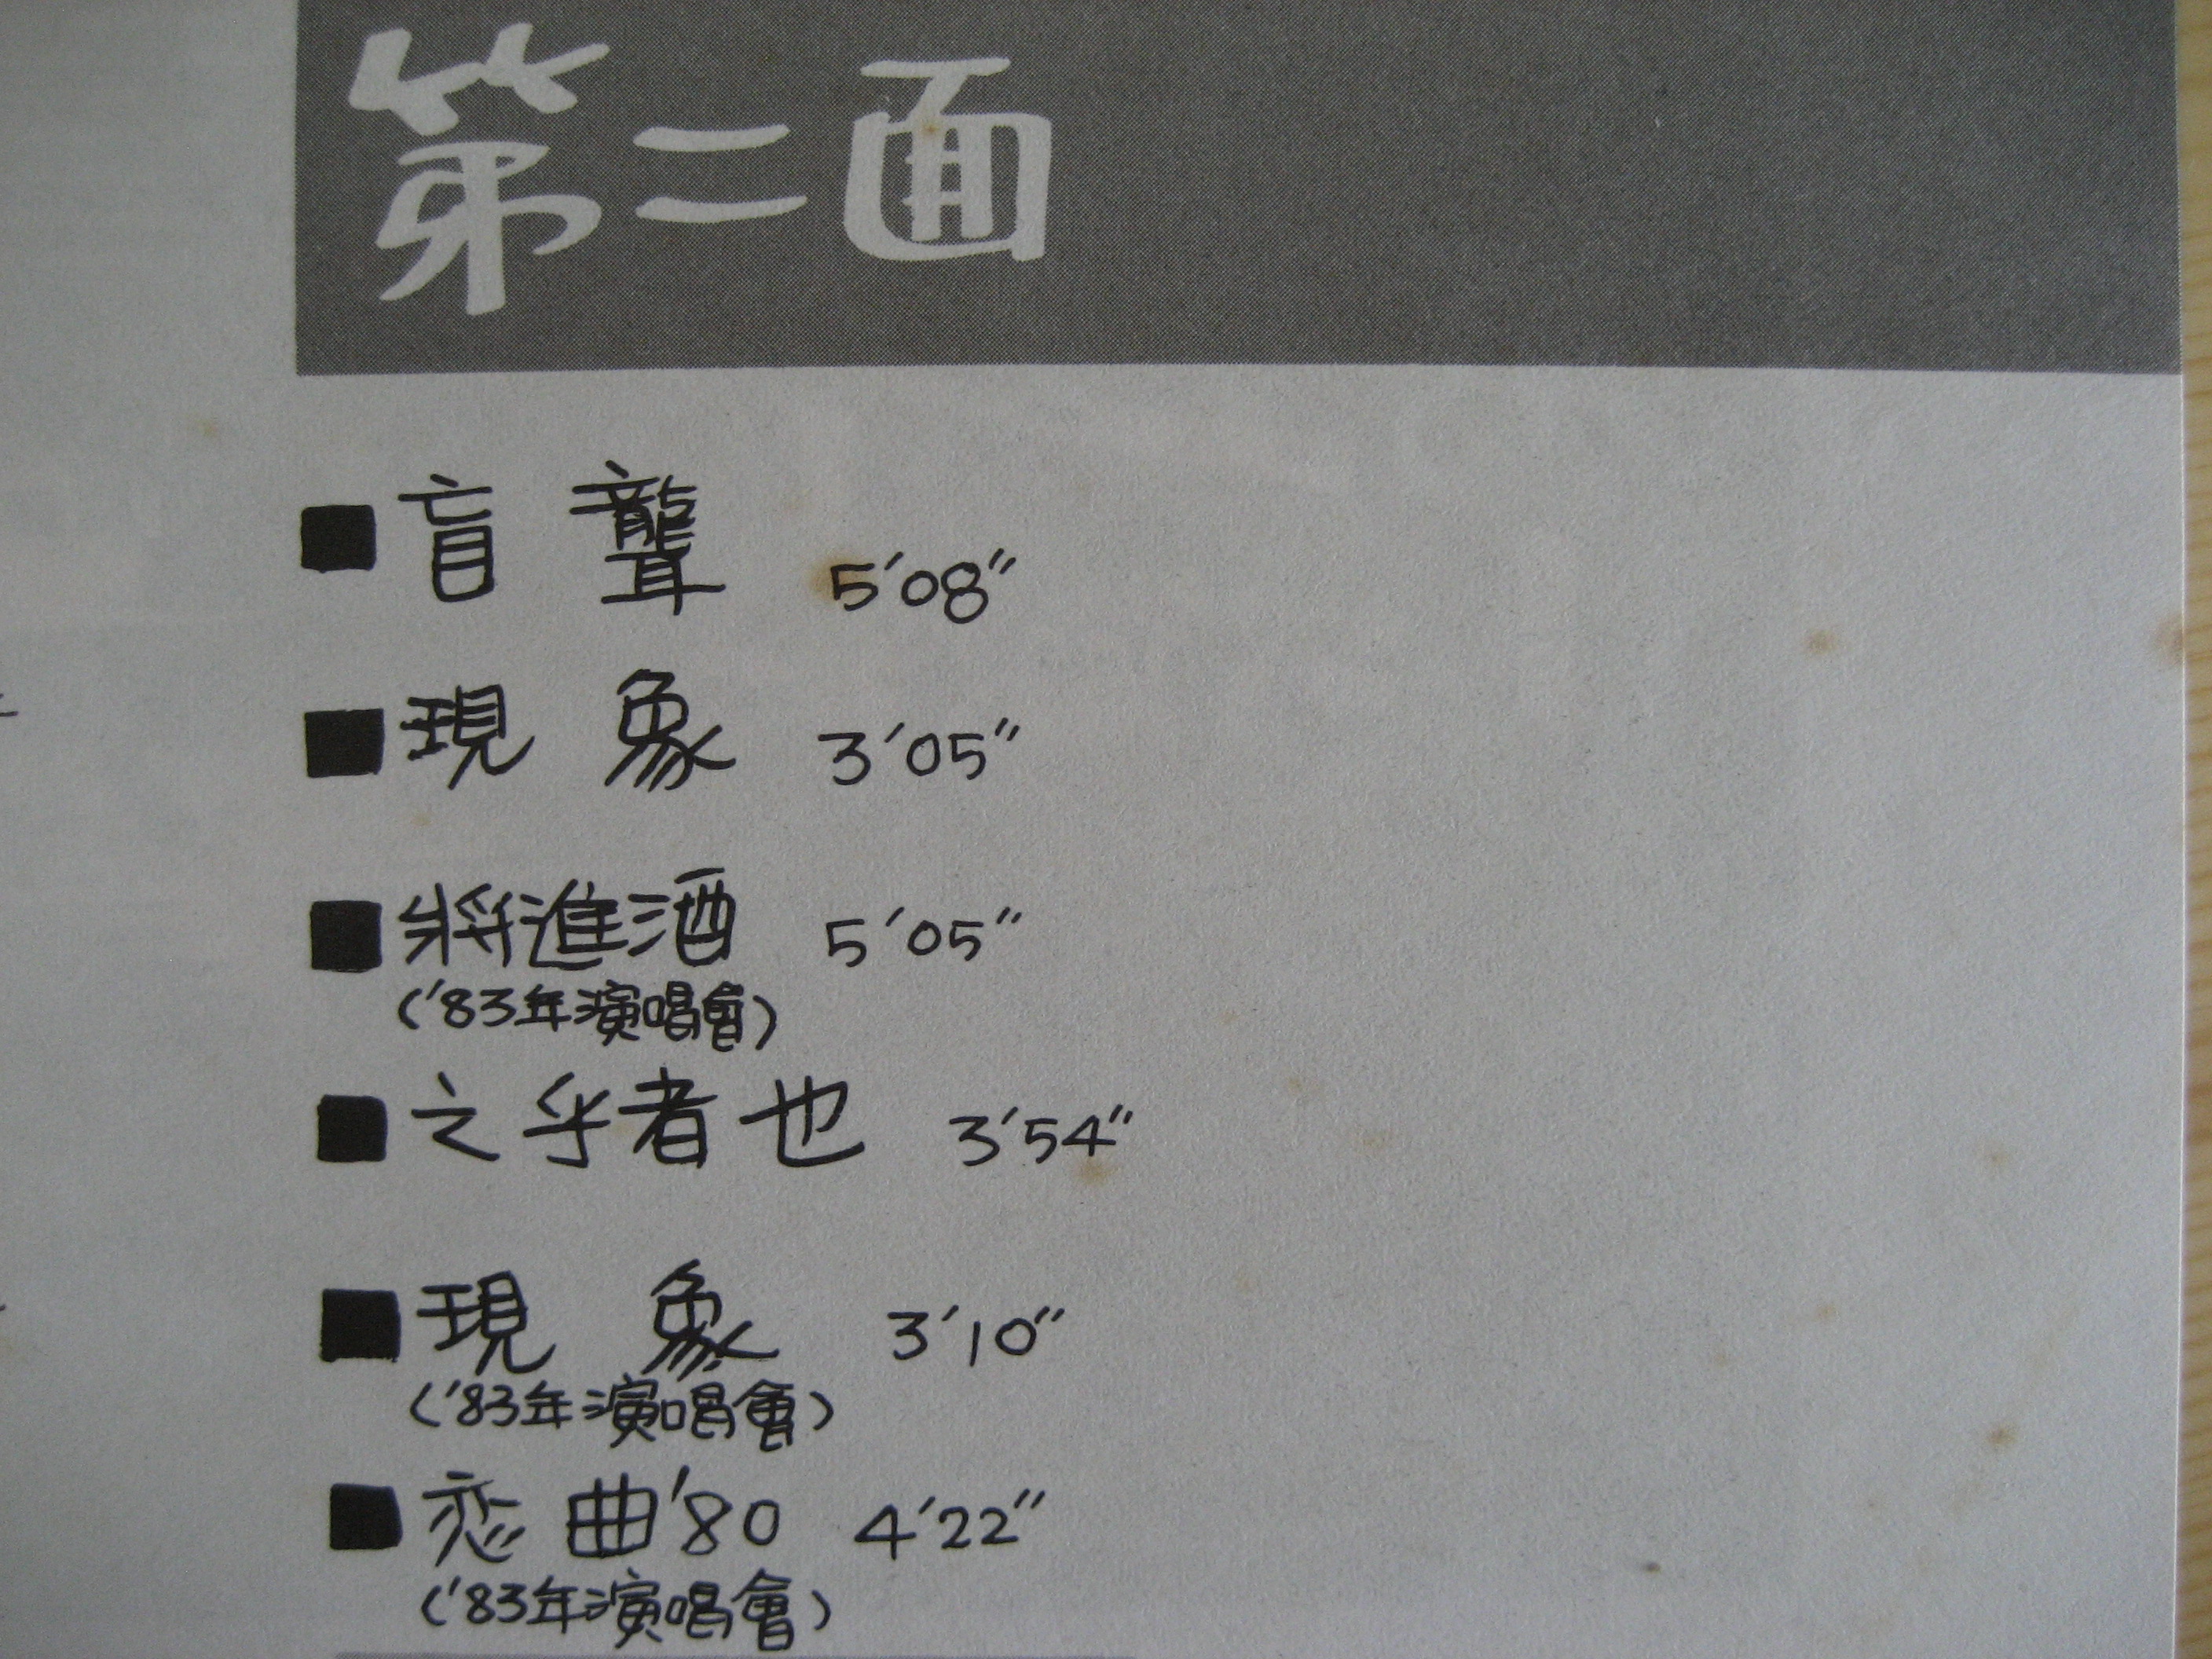 第二面
■盲聾 5'08"
■現象 3'05"
■將進酒 5'05"
('83年演唱會)
■之乎者也 3'54"
■現象 3'10"
('83年演唱會)
■恋曲'80 4'22"
('83年演唱會)